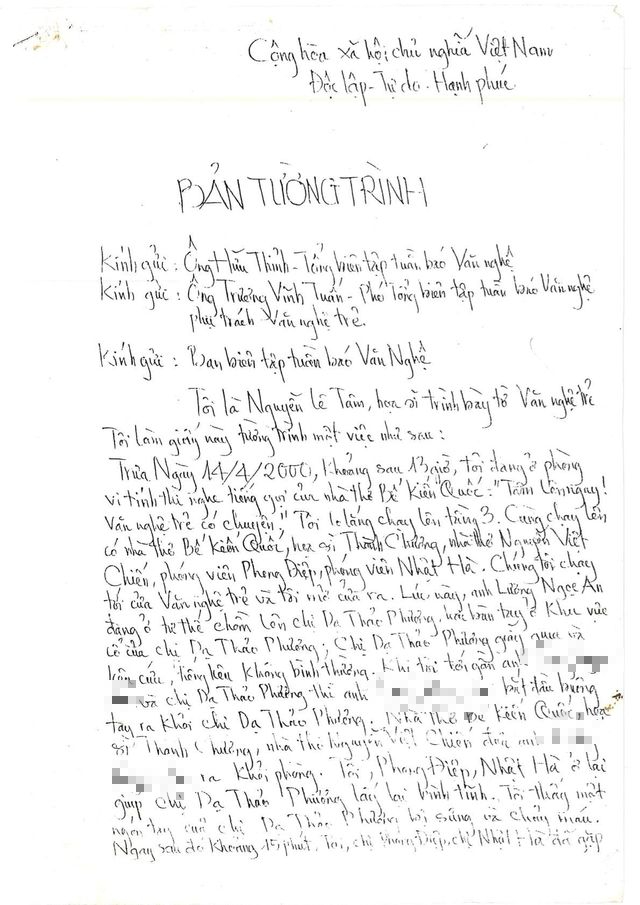 Cộng hòa xã hội chủ nghĩa Việt Nam
Độc lập - Tự do - Hạnh phúc
BẢN TƯỜNG TRÌNH
Kính gửi : Ông Hữu Thỉnh - Tổng biên tập tuần báo Văn nghệ
Kính gửi : Ông Trương Vĩnh Tuấn - Phó Tổng biên tập tuần báo Văn nghệ
phụ trách Văn nghệ trẻ.
Kính gửi : Ban biên tập tuần báo Văn Nghệ
Tôi là Nguyễn Lê Tâm, họa sĩ trình bày tờ Văn nghệ trẻ
Tôi làm giấy này tường trình một việc như sau :
Trưa Ngày 14/4/2000, Khoảng sau 13 giờ, tôi đang ở phòng
vi tính thì nghe tiếng gọi của nhà thơ Bế Kiến Quốc : "Tâm lên ngay!
Văn nghệ trẻ có chuyện." Tôi lo lắng chạy lên tầng 3. Cùng chạy lên
có nhà thơ Bế Kiến Quốc, họa sĩ Thành Chương, nhà thơ Nguyễn Việt
Chiến, phóng viên Phong Điệp, phóng viên Nhật Hà. Chúng tôi chạy
tới cửa Văn nghệ trẻ và tôi mở cửa ra. Lúc này, anh Lương Ngọc An
đang ở tư thế chồm lên chị Dạ Thảo Phương, hai bàn tay ở Khu vực
cổ của chị Dạ Thảo Phương; Chị Dạ Thảo Phương giãy giụa và
kêu cứu, tiếng kêu Không bình thường. Khi tôi tới gần anh
và chị Dạ Thảo Phương thì anh bắt đầu buông
tay ra Khỏi chị Dạ Thảo Phương. Nhà thơ Bế Kiến Quốc, họa
sĩ Thành Chương, nhà thơ Nguyễn Việt Chiến đưa anh
ra Khỏi phòng. Tôi, Phong Điệp, Nhật Hà ở lại
giúp chị Dạ Thảo Phương lấy lại bình tĩnh. Tôi thấy một
ngón tay của chị Dạ Thảo Phương bị sưng và chảy máu.
Ngay sau đó Khoảng 15 phút, Tôi, chị Phong Điệp, chị Nhật Hà đã gặp